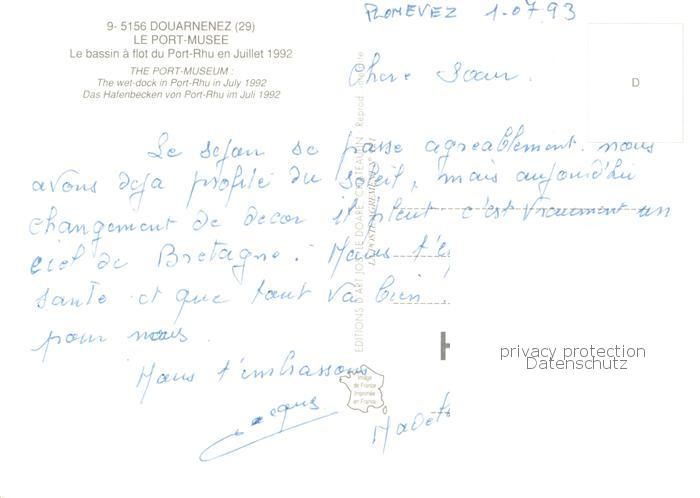 9- 5156 DOUARNENEZ (29)
LE PORT-MUSEE
Le bassin à flot du Port-Rhu en Juillet 1992
THE PORT-MUSEUM :
The wet-dock in Port-Rhu in July 1992
Das Hafenbecken von Port-Rhu im Juli 1992
PLOMEVEZ 1-07-93
Chere Soeur.
D
Le sejour se passe agreablement. nous
avons deja profité du soleil, mais aujourd'hui
changement de decor il pleut c'est vraiment un
ciel de Bretagne. Nous t'es
santé et que tout va bien.
pour nous
Nous t'embrassons
Jacques
EDITIONS D'ART JOS LE DOARÉ, CHATEAULIN - Reprod. interdite
Image
de France
Imprimée
en France
H
privacy protection
Datenschutz